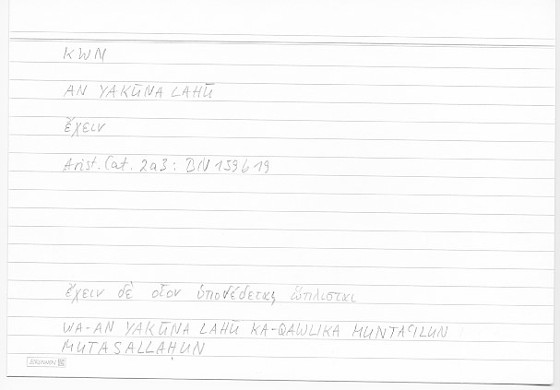 KWN
AN YAKŪNA LAHŪ
ἔχειν
Arist. Cat. 2a3 : BN 159b19
ἔχειν δὲ οἷον ὑποδέδεται, ὥπλισται
WA-AN YAKŪNA LAHŪ KA-QAWLIKA MUNTAʿILUN
MUTASALLAḤUN